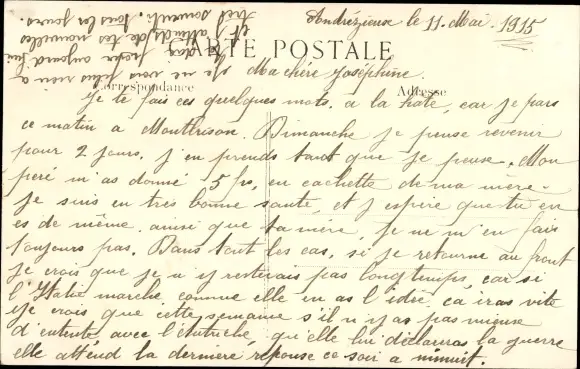 Andrézieux le 11 Mai 1915
CARTE POSTALE
Correspondance
Adresse
Ma chère Joséphine.
Je te fais ces quelques mots, a la hate, car je pars
ce matin a Montbrison. Dimanche je pense revenir
pour 2 jours, j'en prends tant que je peuse. Mon
peré m'as donné 5 frs, en cachette de ma mère.
Je suis en très bonne santé, et j'espère que tu en
es de même, ainsi que ta mère, je ne m'en fais
toujours pas. Dans tout les cas, si je retourne au front
je crois que je n'y resterais pas longtemps, car si
l'Italie marche, comme elle en as l'idée, ça iras vite
Je crois que cette semaine s'il n'y as pas mieux
d'entente, avec l'Autriche, qu'elle lui déclareras la guerre
elle attend la dernière réponse ce soir a minuit.
Je ne vois plus rien a
te dire, pour aujourd'hui
et j'attends de tes nouvelles
très souvent. tous les jours.